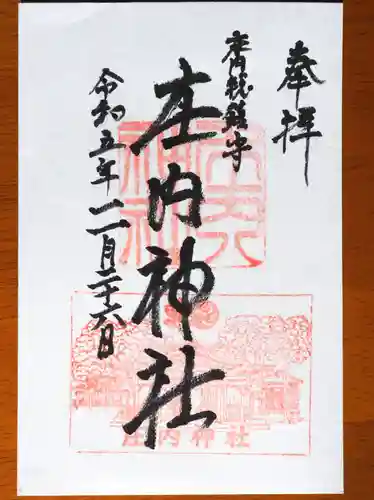 奉拝
庄内総鎮守
庄内神社
令和五年二月二十六日
庄内神社
庄内神社